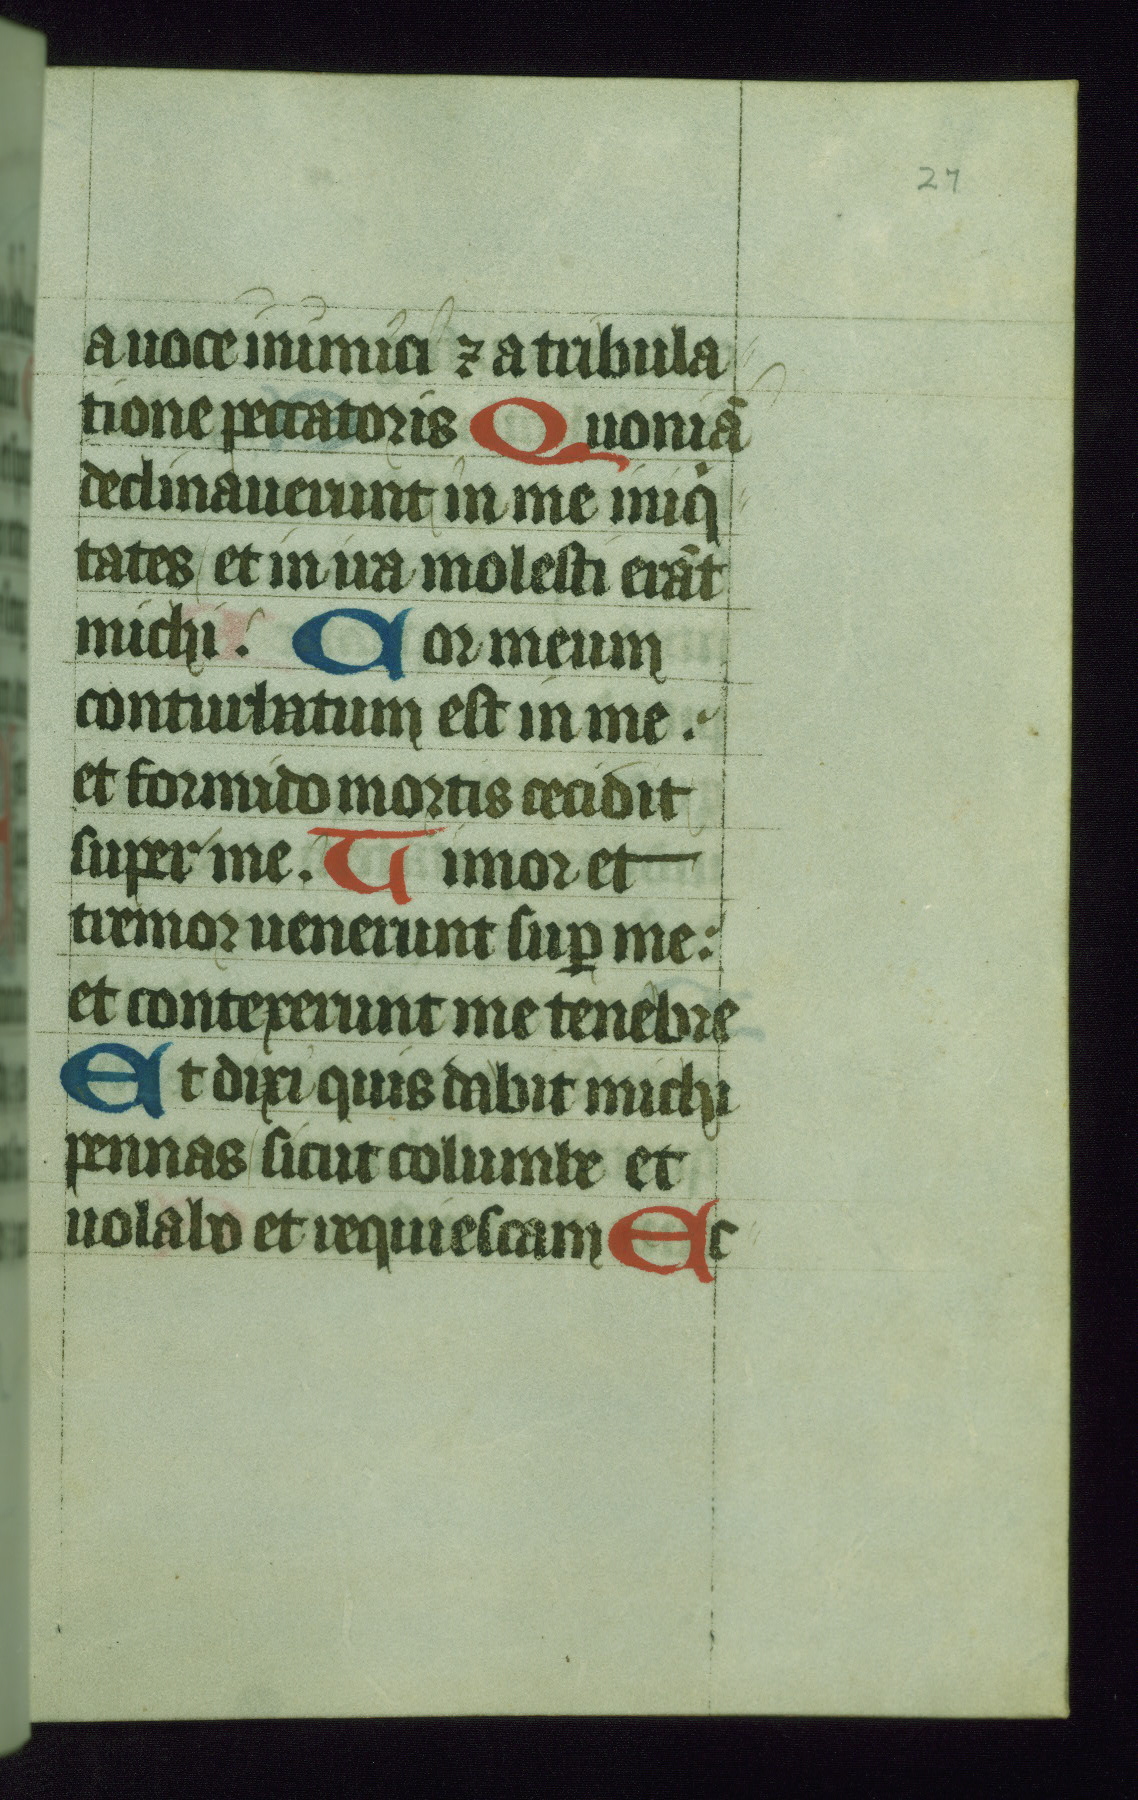 27
a uoce inimici ⁊ a tribula
tione peccatoris Quoniā
declinauerunt in me iniqⁱ
tates et in ira molesti erāt
michi. Cor meum
conturbatum est in me.
et formido mortis cecidit
super me. Timor et
tremor uenerunt suꝑ me:
et contexerunt me tenebre
Et dixi quis dabit michi
pennas sicut columbe et
uolabo et requiescam Ec